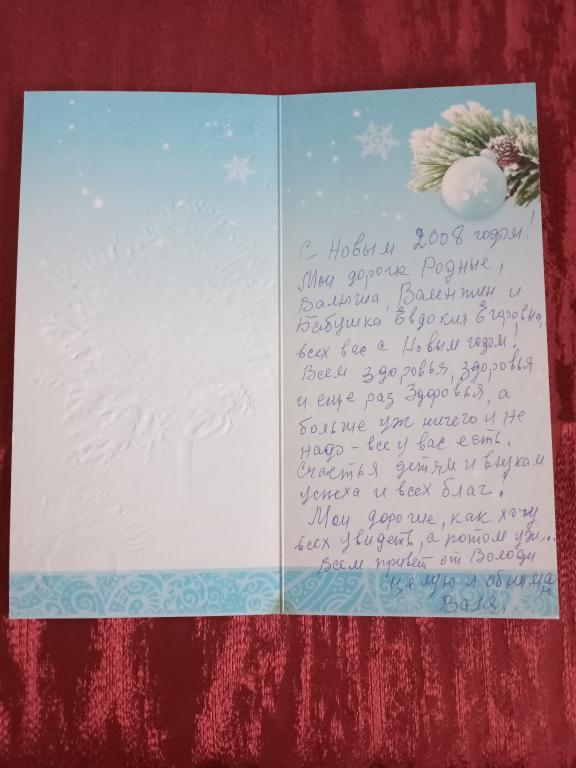 С Новым 2008 годом!
Мои дороги Родные,
Валюша, Валентин и
Бабушка Евдокия Егоровна,
всех вас с Новым годом!
Всем здоровья, здоровья
и еще раз Здоровья, а
больше уж ничего и не
надо - все у вас есть.
Счастья детям и внукам
успеха и всех благ.
Мои дорогие, как хочу
всех увидеть, а потом уж...
Всем привет от Володи
целую и обнимаю
Валя.